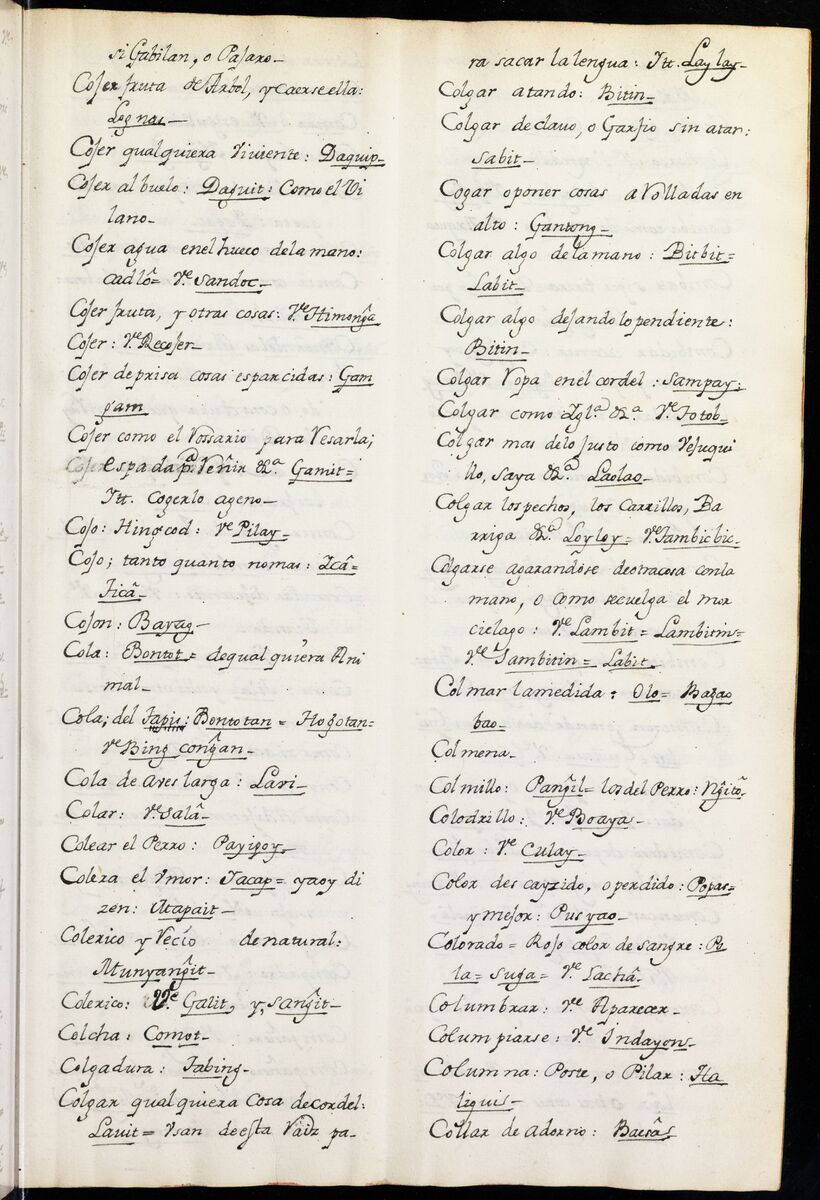 si Gabilan, o Pajaro_
Cojer fruta de Arbol, y caerse ella:
Lognas_
Cojer qualquiera viviente: Daquip_
Cojer al buelo: Daguit: Como el Vi
lano_
Cojer agua en el hueco de la mano:
cadlô= Ve. Sandoc_
Cojer fruta, y otras cosas: Ve. Himongâ
Cojer: Ve. Recojer_
Cojer de prisa cosas esparcidas: Gam
gam
Cojer como el Rossario para Resarla;
espada pa. Reñir &a. Gamit=
Itt. cogerlo ageno_
Cojo: Hingcod: Ve. Pilay_
Cojo; tanto quanto nomas: Icâ=
Ticâ_
Cojon: Bayag_
Cola: Bontot= de qualquiera Ani
mal_
Cola; del Tapis: Bontotan= Hogotan=
Ve. Bing congan_
Cola de aves larga: Lavi_
Colar: Ve. Salâ_
Colear el Perro: Payipoy_
Colera el Umor: Tacap= ya oy di
zen: Atapait_
Colerico y Recio de natural:
Munyangit_
Colerico: Ve. Galit, y, sangit_
Colcha: Comot_
Colgadura: Tabing_
Colgar qualquiera cosa de cordel:
Lauit= Usan de esta Raiz pa_
ra sacar la lengua: Itt. Laylay_
Colgar atando: Bitin_
Colgar de clavo, o Garfio sin atar:
sabit_
Cogar o poner cosas a Rolladas en
alto: Gantong_
Colgar algo de la mano: Bitbit=
Labit_
Colgar algo dejandolo pendiente:
Bitin_
Colgar Ropa en el cordel: Sampay:
Colgar como Igla. &a. Ve. Totob_
Colgar mas de lo justo como Pesugui
llo, saya &a. Laolao_
Colgar los pechos, los carrillos, Ba
rriga &a. Loyloy= Ve. Tambicbic_
Colgarse agarandose de otra cosa con la
mano, o como se cuelga el mor
cielago: Ve. Lambit= Lambitin=
Ve. Tambitin= Labit_
Colmar la medida: Olo= Bagao
bao_
Colmena_
Colmillo: Pangil= los del Perro: Ngitô_
Colodrillo: Ve. Boaya_
Color: Ve. Culay_
Color descayzido, o perdido: Popas=
y mejor: Pusyao_
Colorado= Rojo color de sangre: Pu
la= suga= Ve. Lachâ_
Columbrar: Ve. Aparecer_
Columpiarse: Ve. Indayons_
Columna: Poste, o Pilar: Ha
ligui_
Collar de adorno: Baesâs